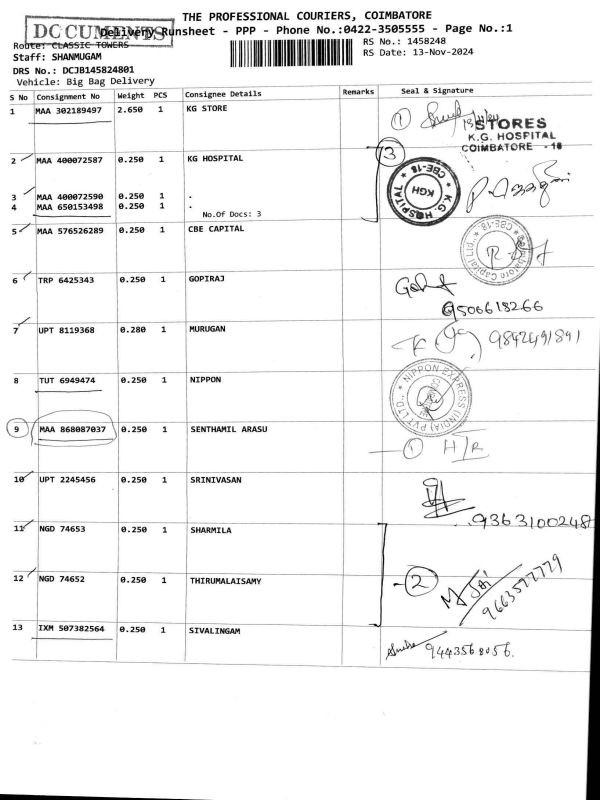 THE PROFESSIONAL COURIERS, COIMBATORE
DOCUMENTS
Delivery Runsheet - PPP - Phone No.:0422-3505555 - Page No.:1
Route: CLASSIC TOWERS
RS No.: 1458248
Staff: SHANMUGAM
RS Date: 13-Nov-2024
DRS No.: DCJB145824801
Vehicle: Big Bag Delivery
S No Consignment No Weight PCS Consignee Details Remarks Seal & Signature
1 MAA 302189497 2.650 1 KG STORE
1
STORES
K.G. HOSPITAL
COIMBATORE - 18
2 MAA 400072587 0.250 1 KG HOSPITAL
3
K.G. HOSPITAL CBE-18
KGH
3 MAA 400072590 0.250 1 .
4 MAA 650153498 0.250 1 .
No.Of Docs: 3
5 MAA 576526289 0.250 1 CBE CAPITAL
CBE-18.
6 TRP 6425343 0.250 1 GOPIRAJ
9506618266
7 UPT 8119368 0.280 1 MURUGAN
8 TUT 6949474 0.250 1 NIPPON
NIPPON EXPRESS (INDIA) PVT LTD.,
9 MAA 868087037 0.250 1 SENTHAMIL ARASU
- 1 H/R
10 UPT 2245456 0.250 1 SRINIVASAN
9363100248
11 NGD 74653 0.250 1 SHARMILA
- 2
12 NGD 74652 0.250 1 THIRUMALAISAMY
9663577779
13 IXM 507382564 0.250 1 SIVALINGAM
9443568056.